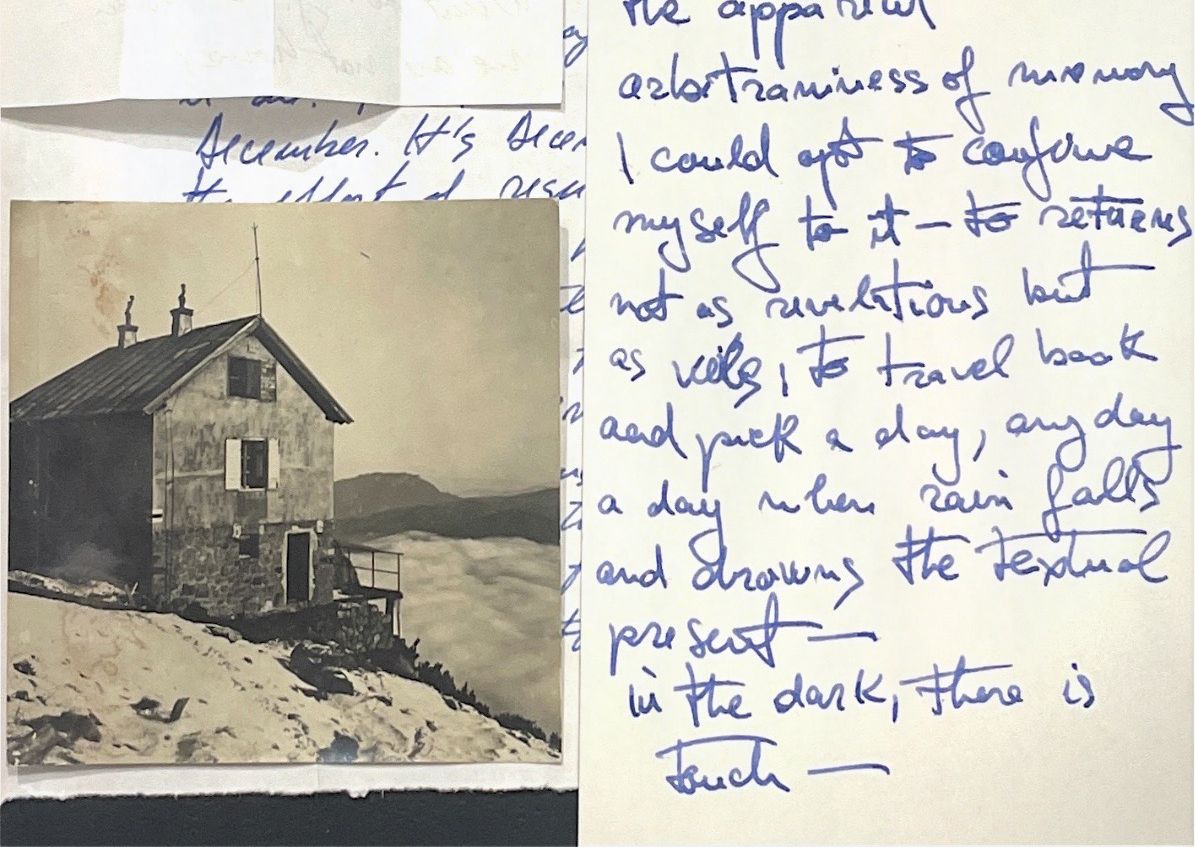 December. It's Decem
the effort of
the apparent
arbitrariness of memory
I could opt to confine
myself to it — to returns
not as revelations but
as veils, to travel back
and pick a day, any day
a day when rain falls
and drowns the textual
present —
in the dark, there is
touch —